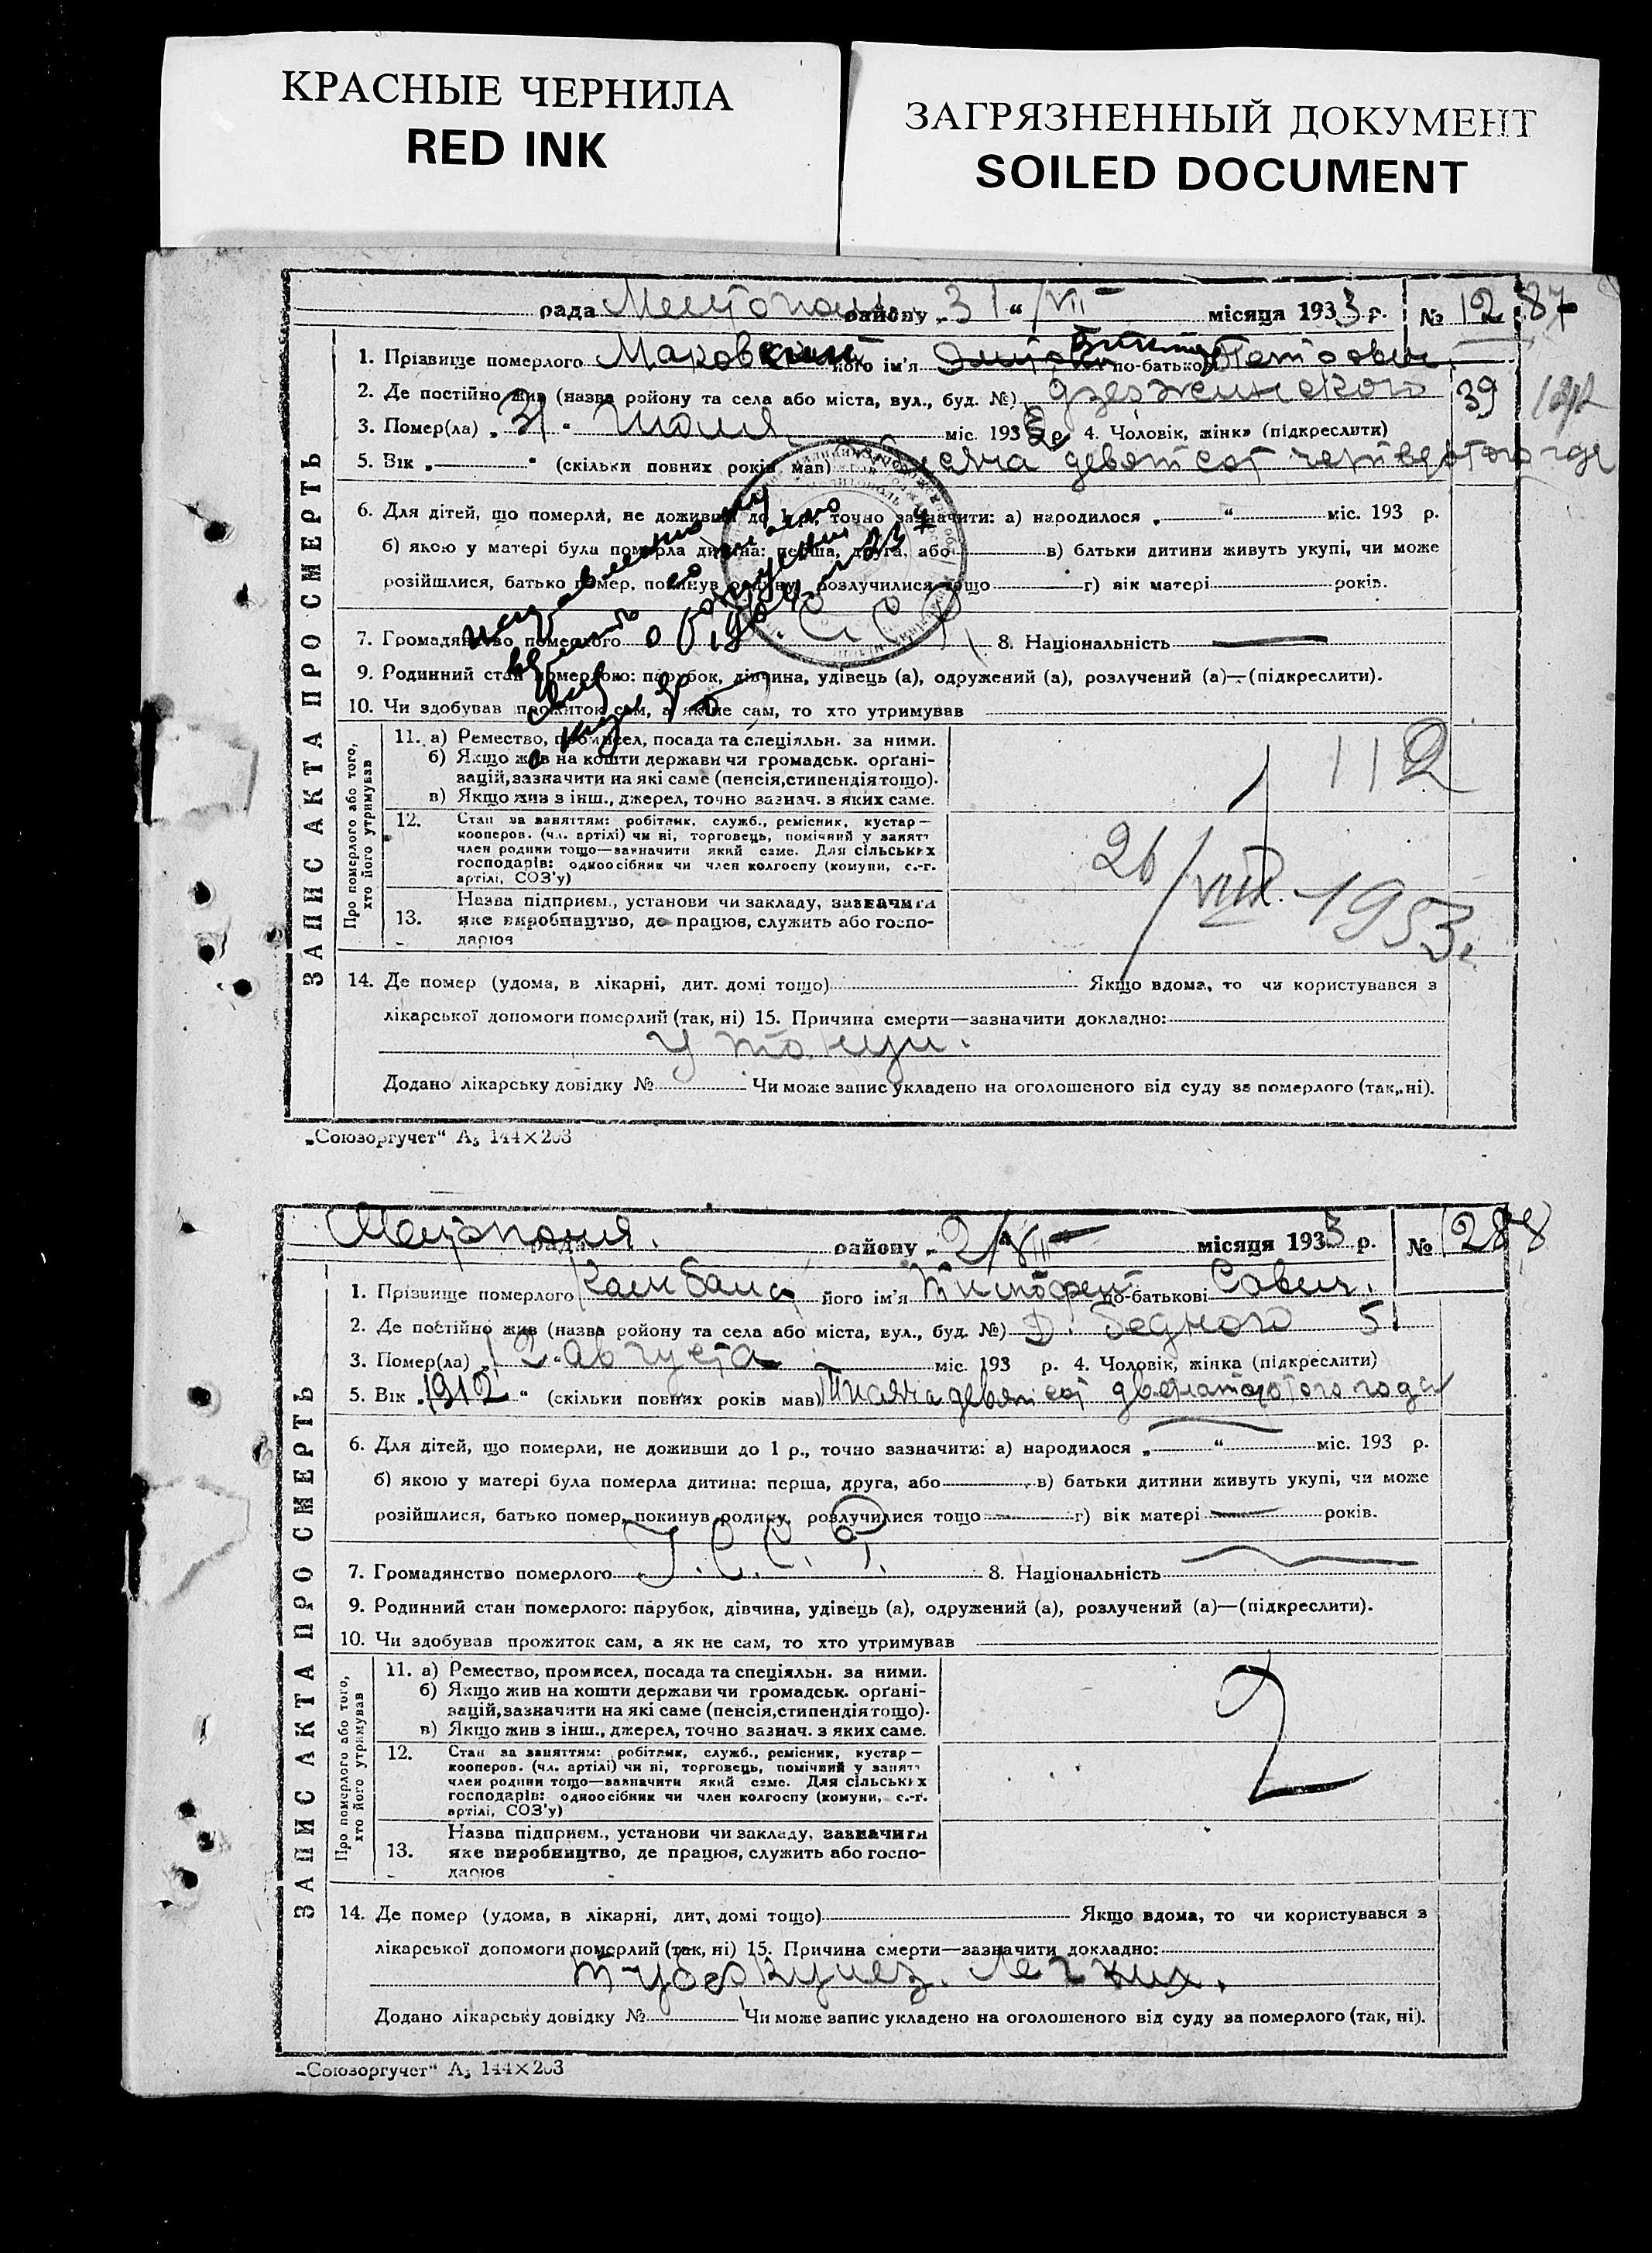 КРАСНЫЕ ЧЕРНИЛА
RED INK
ЗАГРЯЗНЕННЫЙ ДОКУМЕНТ
SOILED DOCUMENT
рада району „31“ VII місяця 1933 р. № 1287
1. Прізвище померлого Маковский його ім'я по-батькові
2. Де постійно жив (назва району та села або міста, вул., буд. №) Дзержинского 39
3. Помер(ла) „31“ Июля міс. 193 р. 4. Чоловік, жінка (підкреслити)
5. Вік „ “ (скільки повних років мав) девятсот четвертого
6. Для дітей, що померли, не доживши до 1 р., точно зазначити: а) народилося „ “ міс. 193 р.
б) якою у матері була померла дитина: перша, друга, або в) батьки дитини живуть укупі, чи може
розійшлися, батько помер, покинув родину, розлучилися тощо г) вік матері років.
7. Громадянство померлого 8. Національність
9. Родинний стан померлого: парубок, дівчина, удівець (а), одружений (а), розлучений (а)—(підкреслити).
10. Чи здобував прожиток сам, а як не сам, то хто утримував
ЗАПИС АКТА ПРО СМЕРТЬ
Про померлого або того,
хто його утримував
11. а) Ремество, промисел, посада та спеціяльн. за ними.
б) Якщо жив на кошти держави чи громадськ. орґані-
зацій, зазначити на які саме (пенсія, стипендія тощо).
в) Якщо жив з інш., джерел, точно зазнач. з яких саме.
112
12. Стан за заняттям: робітник, служб., ремісник, кустар—
кооперов. (чл. артілі) чи ні, торговець, помічний у занятт
член родини тощо—зазначити який саме. Для сільських
господарів: одноосібник чи член колгоспу (комуни, с.-г.
артілі, СОЗ'у)
26/VIII. 1953г.
13. Назва підприєм., установи чи закладу, зазначити
яке виробництво, де працює, служить або госпо-
дарює
14. Де помер (удома, в лікарні, дит. домі тощо) Якщо вдома, то чи користувався з
лікарської допомоги померлий (так, ні) 15. Причина смерти—зазначити докладно:
Додано лікарську довідку № Чи може запис укладено на оголошеного від суду за померлого (так, ні).
„Союзоргучет“ А₅ 144×203
рада району „2“ VIII місяця 1933 р. № 1288
1. Прізвище померлого його ім'я по-батькові Савич.
2. Де постійно жив (назва району та села або міста, вул., буд. №) Д. Бедного 51
3. Помер(ла) „ 2 “ Августа міс. 193 р. 4. Чоловік, жінка (підкреслити)
5. Вік „1912“ (скільки повних років мав) Тисяча девятсот двенатцотого года
6. Для дітей, що померли, не доживши до 1 р., точно зазначити: а) народилося „ “ міс. 193 р.
б) якою у матері була померла дитина: перша, друга, або в) батьки дитини живуть укупі, чи може
розійшлися, батько помер, покинув родину, розлучилися тощо г) вік матері років.
7. Громадянство померлого У.С.С.Р. 8. Національність
9. Родинний стан померлого: парубок, дівчина, удівець (а), одружений (а), розлучений (а)—(підкреслити).
10. Чи здобував прожиток сам, а як не сам, то хто утримував
ЗАПИС АКТА ПРО СМЕРТЬ
Про померлого або того,
хто його утримував
11. а) Ремество, промисел, посада та спеціяльн. за ними.
б) Якщо жив на кошти держави чи громадськ. орґані-
зацій, зазначити на які саме (пенсія, стипендія тощо).
в) Якщо жив з інш., джерел, точно зазнач. з яких саме.
2
12. Стан за заняттям: робітник, служб., ремісник, кустар—
кооперов. (чл. артілі) чи ні, торговець, помічний у занятт
член родини тощо—зазначити який саме. Для сільських
господарів: одноосібник чи член колгоспу (комуни, с.-г.
артілі, СОЗ'у)
13. Назва підприєм., установи чи закладу, зазначити
яке виробництво, де працює, служить або госпо-
дарює
14. Де помер (удома, в лікарні, дит. домі тощо) Якщо вдома, то чи користувався з
лікарської допомоги померлий (так, ні) 15. Причина смерти—зазначити докладно:
туберкулез. легких.
Додано лікарську довідку № Чи може запис укладено на оголошеного від суду за померлого (так, ні).
„Союзоргучет“ А₅ 144×203